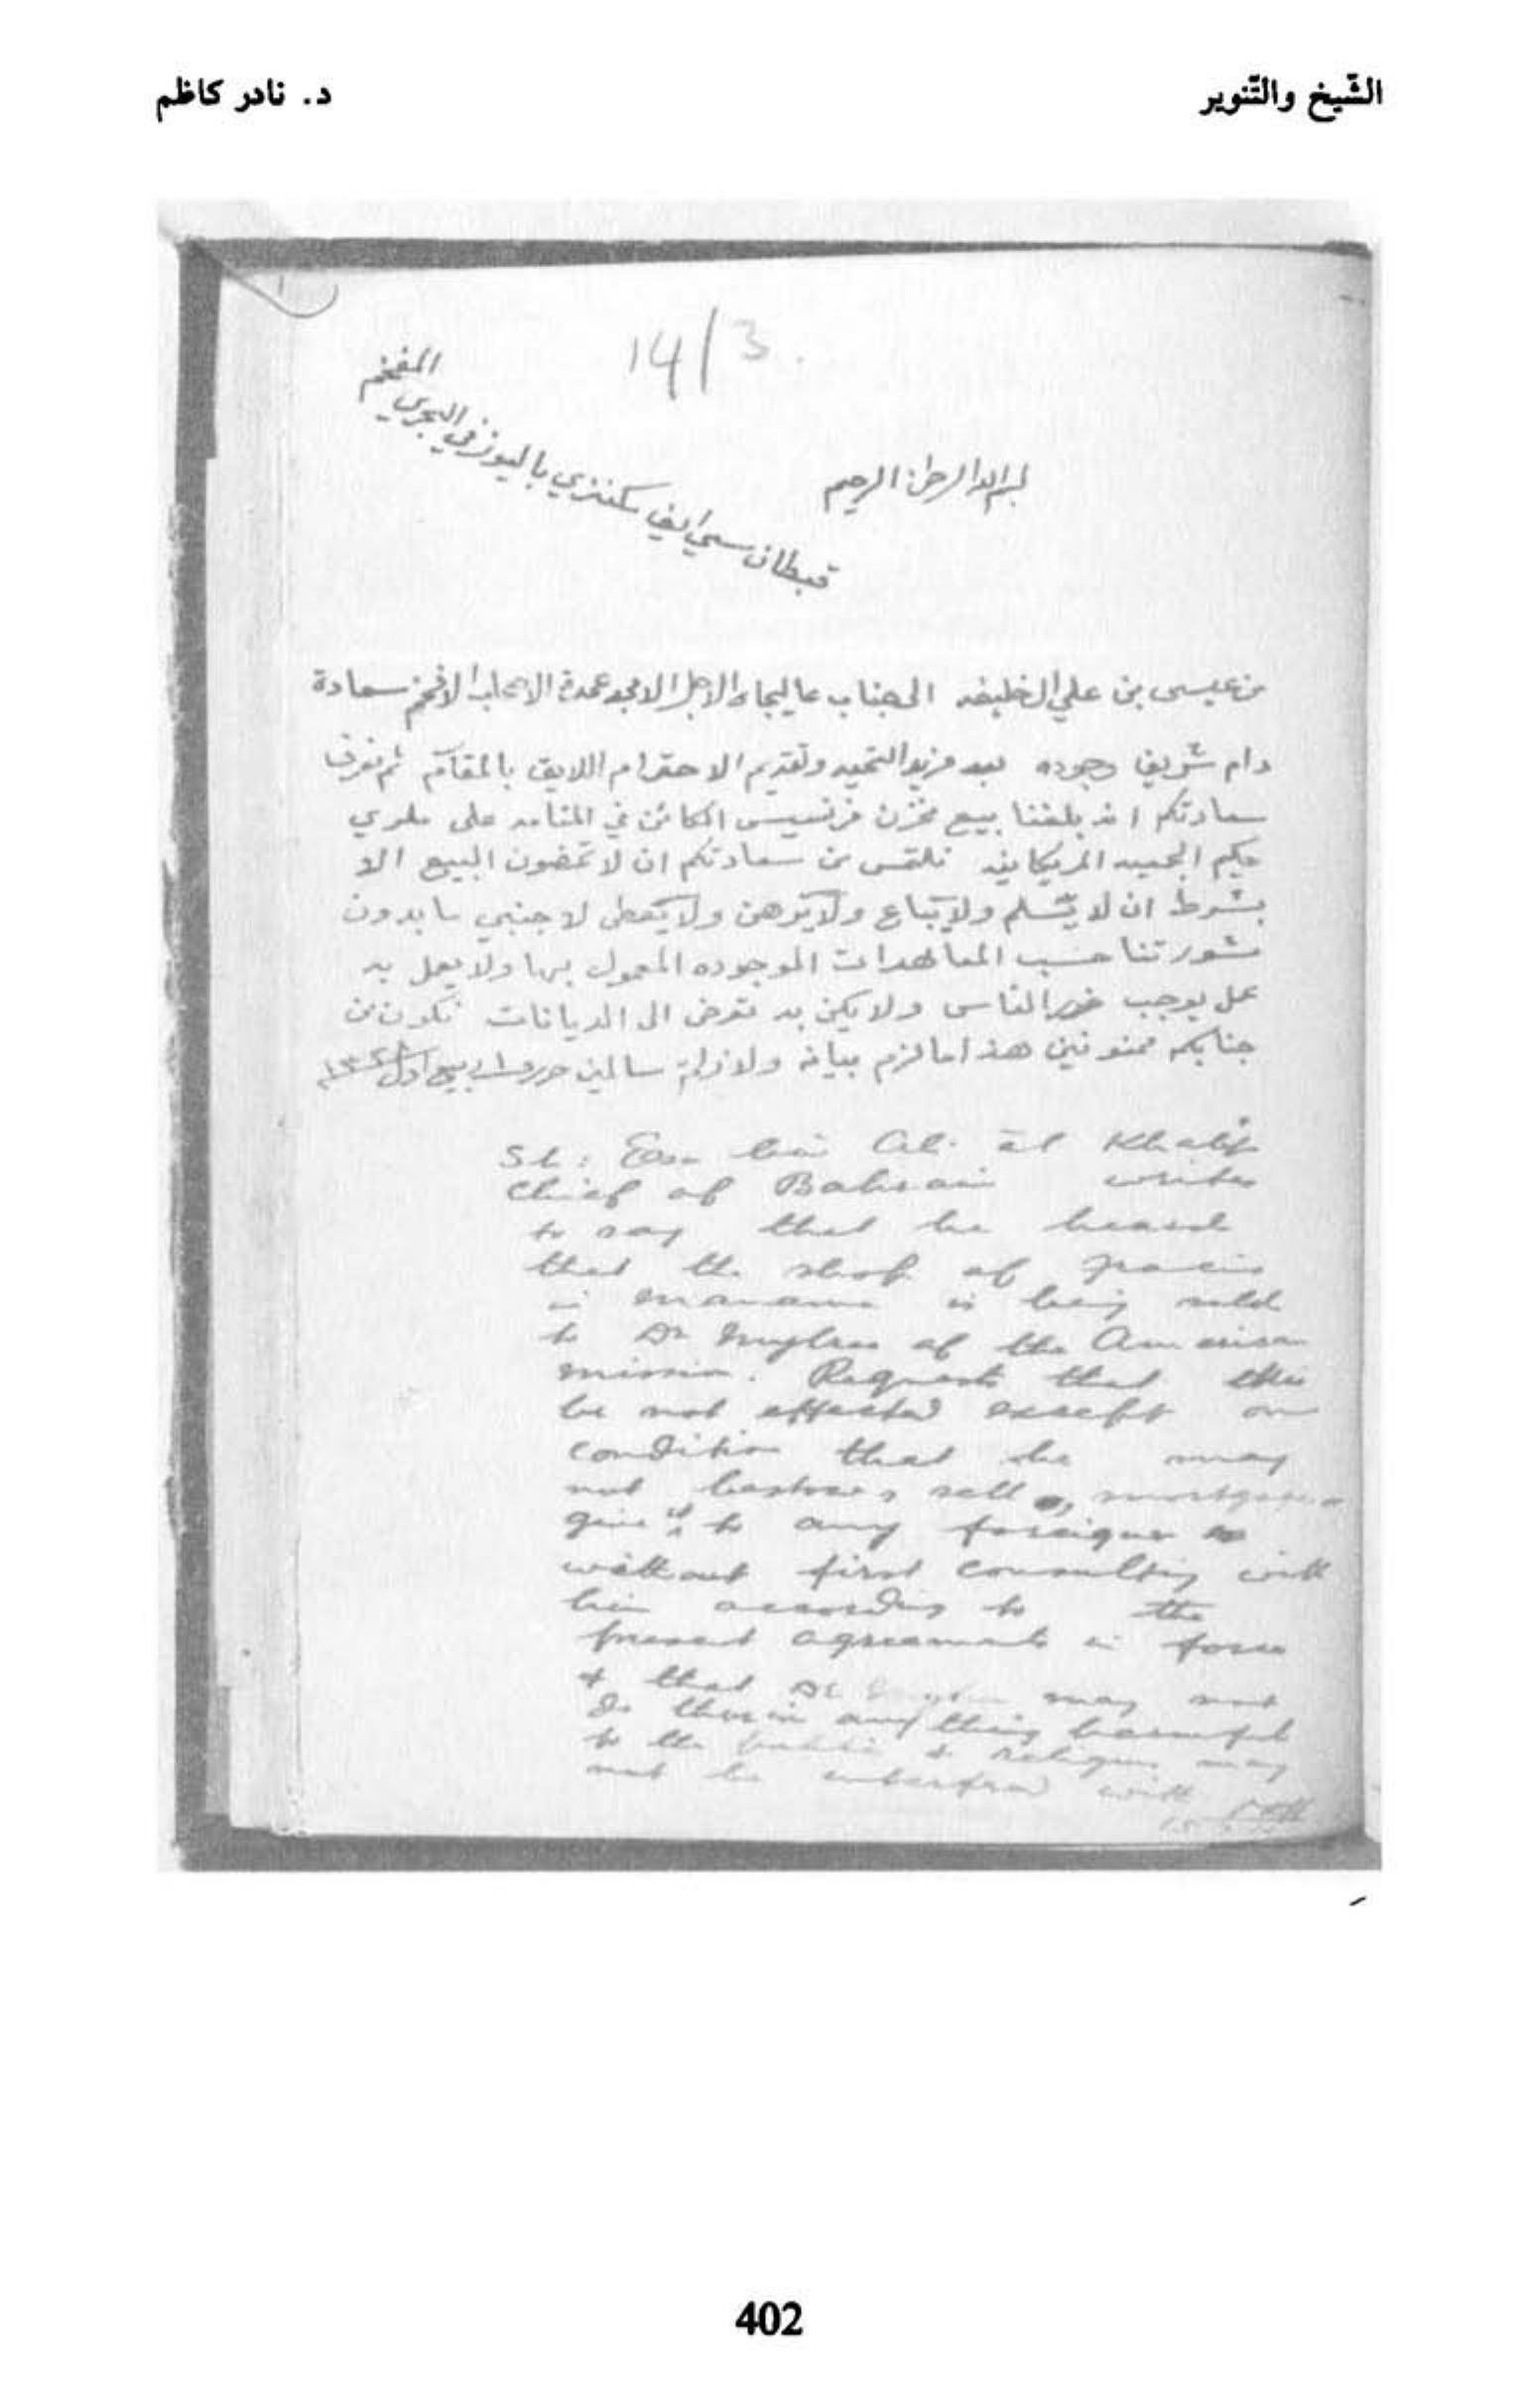 الشّيخ والتّنوير
د. نادر كاظم
14/3.
بسم الله الرحمن الرحيم
قبطان سي ايف مكنزي باليوز في البحرين المفخم
من عيسى بن علي ال خليفه الى جناب عاليجاه الاجل الامجد عمدة الاصحاب الافخم سعادة
دام شريف وجوده بعد مزيد التحيه وتقديم الاحترام اللايق بالمقام ثم نعرف
سعادتكم انه بلغنا بيع مخزن فرنسيس الكائن في المنامه على
حكيم الجمعيه المريكانيه نلتمس من سعادتكم ان لا تمضون البيع الا
بشرط ان لا يسلم ولا يباع ولا يرهن ولا يعطى لاجنبي ما بدون
مشورتنا حسب المعاهدات الموجوده المعمول بها ولا يعمل به
عمل يوجب ضرر الناس ولا يكن به تعرض الى الديانات نكون من
جنابكم ممنونين هذا ما لزم بيانه ولا زلتم سالمين حرر ربيع اول
Sh: Esa bin Ali al Khalifa
Chief of Bahrain writes
to say that he heard
that the shop of Francis
in Manama is being sold
to Dr of the American
mission. Requests that this
be not effected except on
condition that he may
not bestow, sell, mortgage or
give it to any foreigner
without first consulting with
him according to the
present agreements in force
& that Dr may not
do therein anything harmful
to the public & religion may
not be interfered with
402